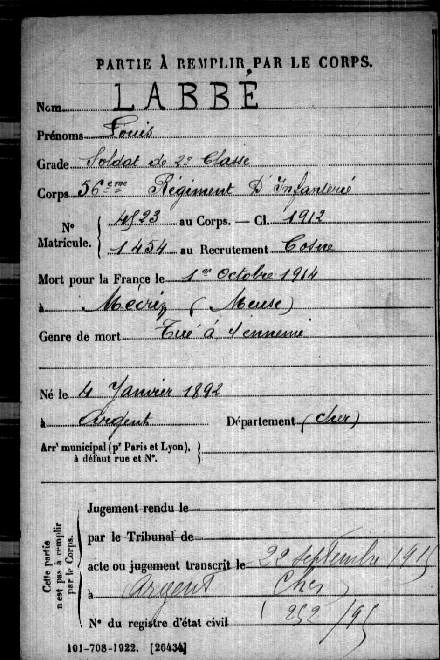 PARTIE À REMPLIR PAR LE CORPS.
Nom LABBÉ
Prénoms Louis
Grade Soldat de 2e Classe
Corps 56eme Régiment D'Infanterie
N° Matricule. { 4523 au Corps. — Cl. 1912
1454 au Recrutement Cosne
Mort pour la France le 1er Octobre 1914
à Mécrin (Meuse)
Genre de mort Tué à l'ennemi
Né le 4 Janvier 1892
à Argent Département (Cher)
Arrt municipal (pr Paris et Lyon), à défaut rue et N°. }
Cette partie n'est pas à remplir par le Corps. {
Jugement rendu le
par le Tribunal de
acte ou jugement transcrit le 22 septembre 1915
à Argent Cher
N° du registre d'état civil (252/95
101-708-1922. [26434]